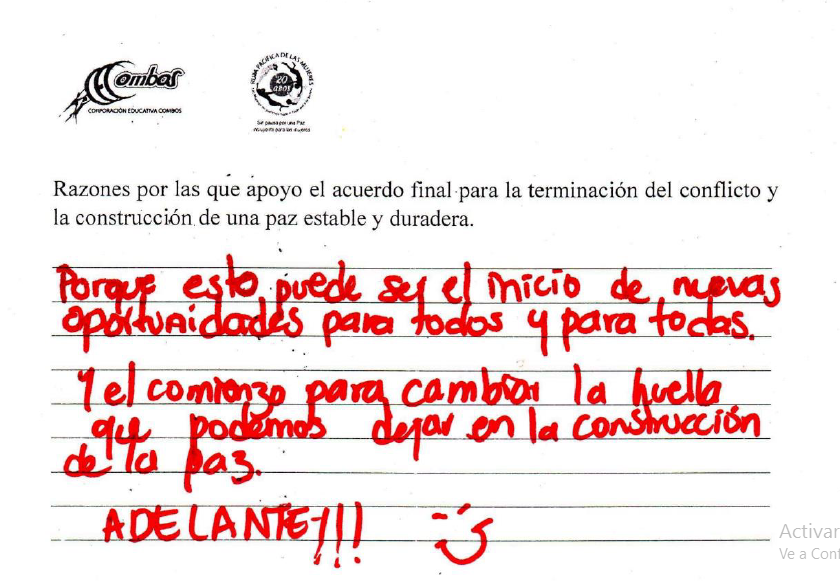 Combos
CORPORACIÓN EDUCATIVA COMBOS
RUTA PACÍFICA DE LAS MUJERES
20
años
Razones por las que apoyo el acuerdo final para la terminación del conflicto y
la construcción de una paz estable y duradera.
Porque esto puede ser el inicio de nuevas
oportunidades para todos y para todas.
Y el comienzo para cambiar la huella
que podemos dejar en la construcción
de la paz.
ADELANTE!!!
Activar
Ve a Conf